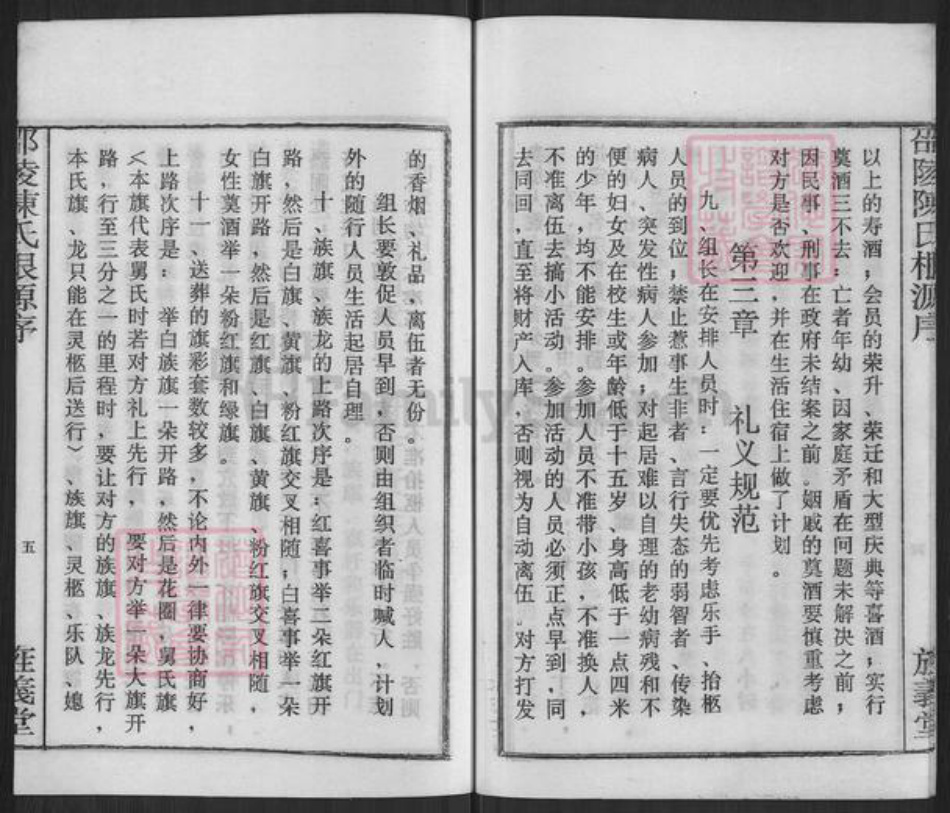 邵陵陳氏根源序
以上的寿酒；会员的荣升、荣迁和大型庆典等喜酒；实行
奠酒三不去：亡者年幼、因家庭矛盾在问题未解决之前；
因民事、刑事在政府未结案之前。姻戚的奠酒要慎重考虑
对方是否欢迎，并在生活住宿上做了计划。
第三章 礼义规范
九、组长在安排人员时：一定要优先考虑乐手、抬柩
人员的到位；禁止惹事生非者、言行失态的弱智者、传染
病人、突发性病人参加；对起居难以自理的老幼病残和不
便的妇女及在校生或年龄低于十五岁、身高低于一点四米
的少年，均不能安排。参加人员不准带小孩，不准换人，
不准离伍去搞小活动。参加活动的人员必须正点早到，同
去同回，直至将财产入库，否则视为自动离伍。对方打发
的香烟、礼品，离伍者无份。
组长要敦促人员早到，否则由组织者临时喊人，计划
外的随行人员生活起居自理。
十、族旗、族龙的上路次序是：红喜事举二朵红旗开
路，然后是白旗、黄旗、粉红旗交叉相随；白喜事举一朵
白旗开路，然后是红旗、白旗、黄旗、粉红旗交叉相随，
女性奠酒举一朵粉红旗和绿旗。
十一、送葬的旗彩套数较多，不论内外一律要协商好，
上路次序是：举白族旗一朵开路，然后是花圈，舅氏旗
〈本旗代表舅氏时若对方礼上先行，要对方举一朵大旗开
路，行至三分之一的里程时，要让对方的族旗、族龙先行，
本氏旗、龙只能在灵柩后送行〉、族旗、灵柩、乐队、媳
邵陵陳氏根源序
五